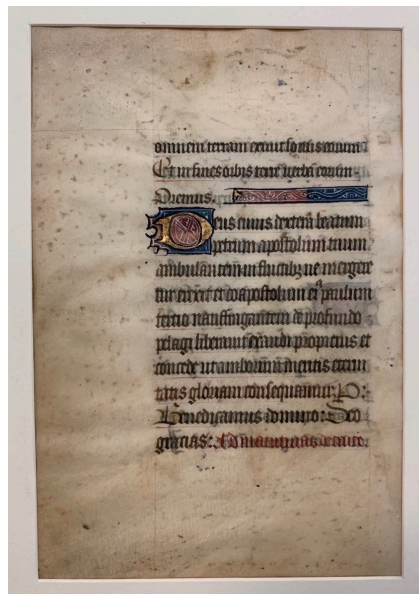 omnem terram exiuit sonus eorum
Et in fines orbis terre uerba eorum
Oremus.
Deus cuius dextera beatum
petrum apostolum tuum
ambulantem in fluctibz ne mergere
tur erexit et coapostolum eiꝰ paulum
tercio naufragantem de profundo
pelagi liberauit exaudi propicius et
concede ut amborum meritis eterni
tatis gloriam consequamur. P:
Benedicamus domino: Deo
gracias: Ad matutinas de cruce.